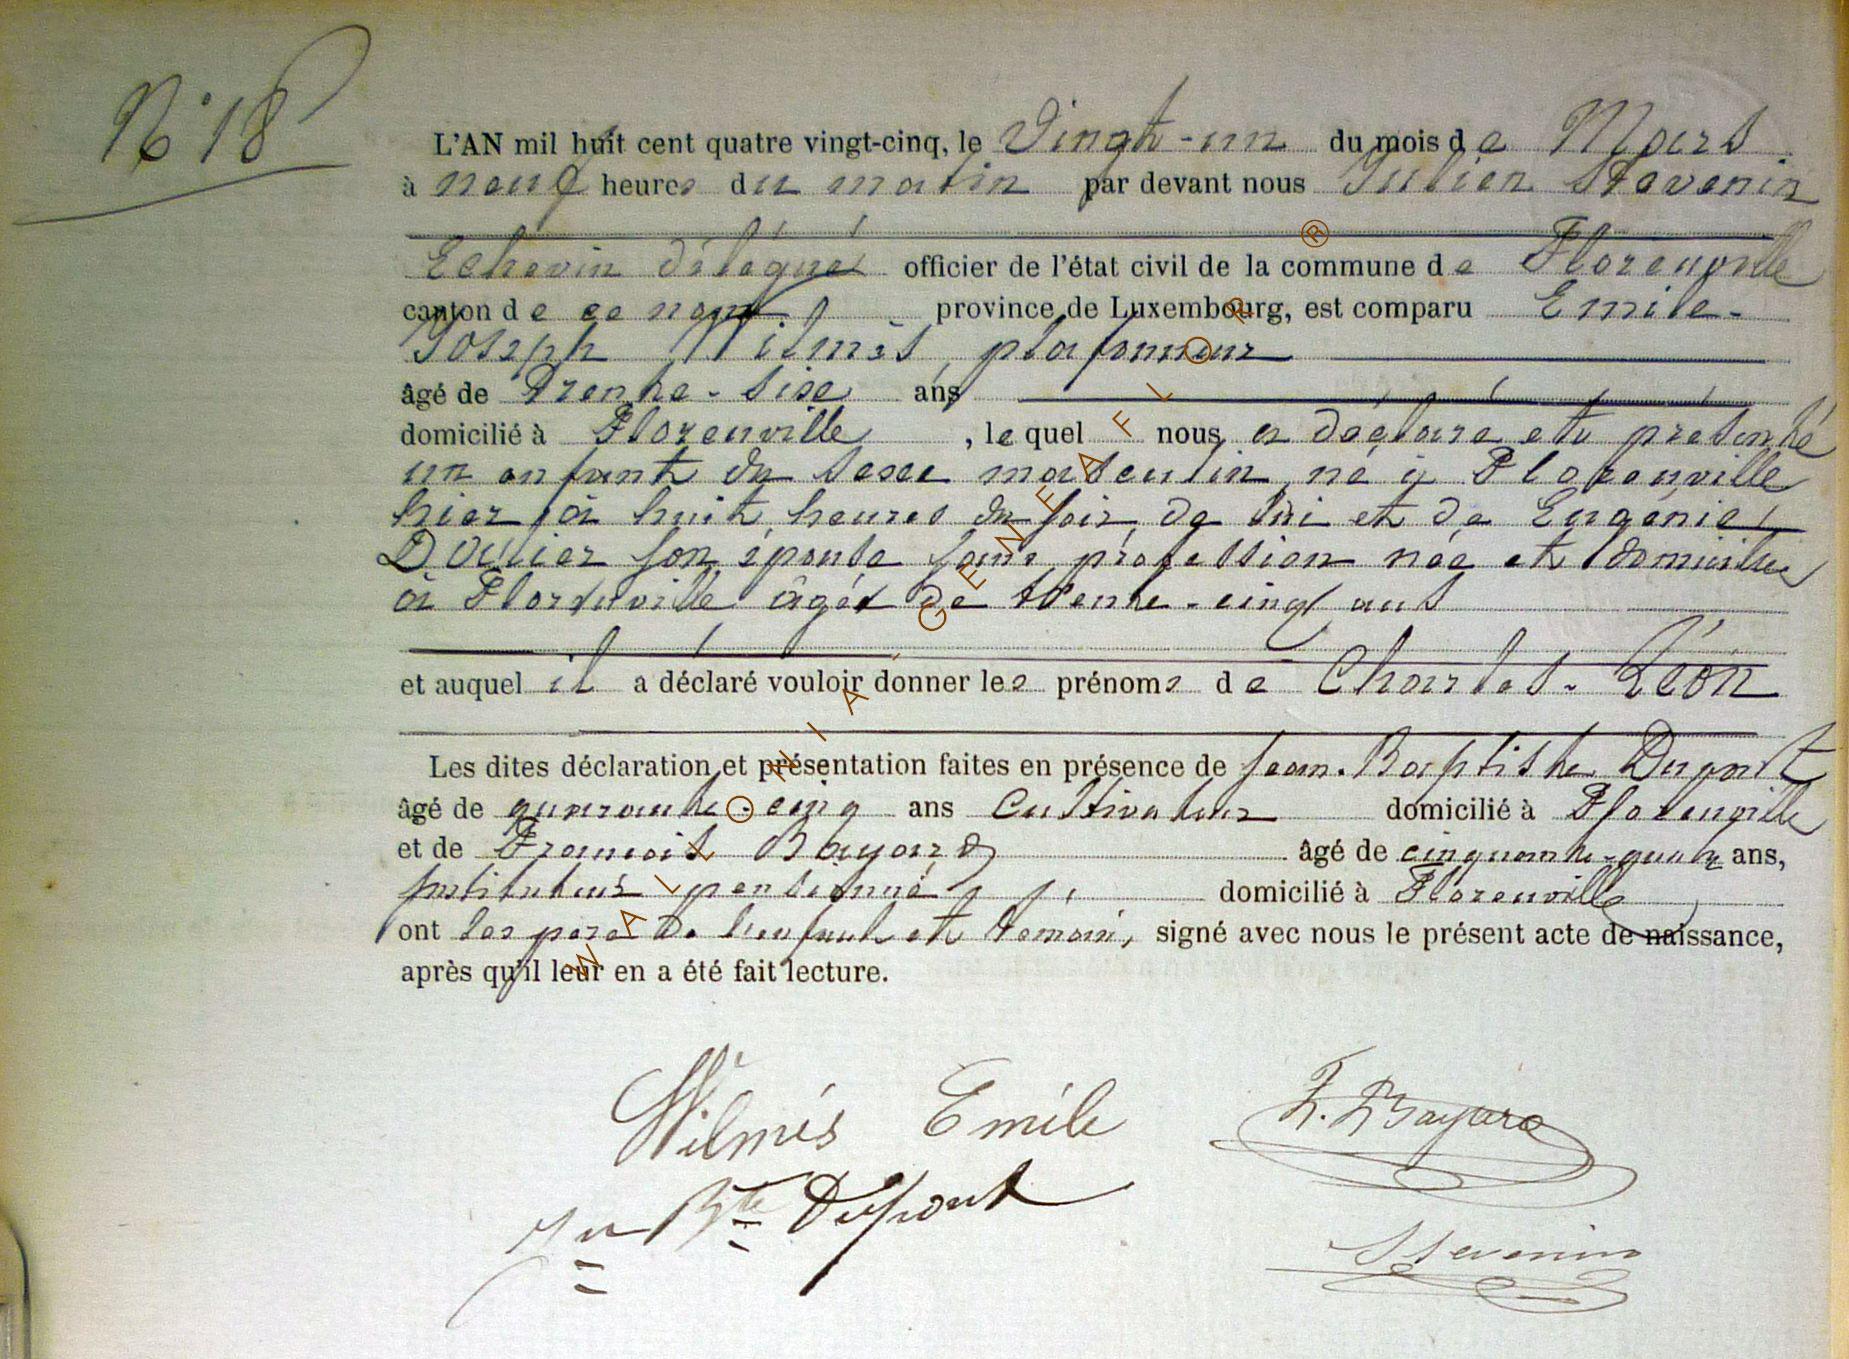 N° 18
L'AN mil huit cent quatre vingt-cinq, le Vingt-un du mois de Mars
à neuf heures du matin par devant nous Julien Stevenin
Echevin délégué officier de l'état civil de la commune de Florenville
canton de ce nom province de Luxembourg, est comparu Emile-
Joseph Wilmès, plafonneur
âgé de Trente-sixe ans
domicilié à Florenville, lequel nous a déclaré et présenté
un enfant du sexe masculin né à Florenville
hier à huit heures du soir, de lui et de Eugénie
son épouse sans profession née et domiciliée
à Florenville âgée de trente-cinq ans
et auquel il a déclaré vouloir donner les prénoms de Charles-Léon
Les dites déclaration et présentation faites en présence de Jean-Baptiste Dupont
âgé de quarante-cinq ans cultivateur domicilié à Florenville
et de François Bayard âgé de cinquante-quatre ans,
Instituteur pensionné domicilié à Florenville
ont les père de l'enfant et témoins, signé avec nous le présent acte de naissance,
après qu'il leur en a été fait lecture.
Wilmès Emile F. Bayard
Jn Bte Dupont
Stevenin
WALLONIA - GENEAFLOR ®